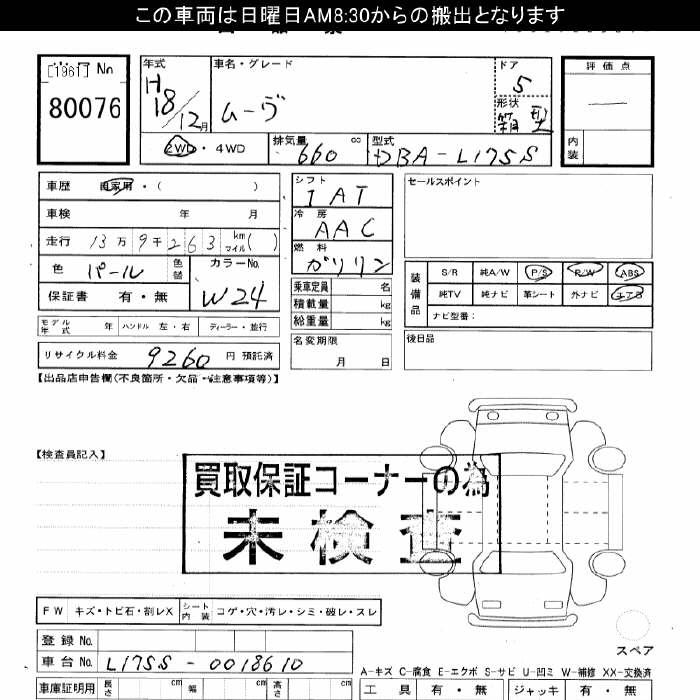 この車両は日曜日AM8:30からの搬出となります
[1961] No 80076
年式 H18/12月
車名・グレード ムーヴ
ドア 5
形状 箱型
評価点 —
内装
2WD・4WD
排気量 660 cc
型式 DBA-L175S
車歴 自家用・( )
車検 年 月
走行 13万9千263 km マイル( )
色 パール 色替
カラーNo. W24
保証書 有・無
シフト IAT
冷房 AAC
燃料 ガソリン
乗車定員 名
積載量 kg
総重量 kg
セールスポイント
装備品
S/R 純A/W P/S P/W ABS
純TV 純ナビ 革シート 外ナビ エアB
ナビ型番:
モデル年式 年 ハンドル 左・右 ディーラー・並行
名変期限 月 日
後日品
リサイクル料金 9260 円 預託済
【出品店申告欄(不良箇所・欠品・注意事項等)】
【検査員記入】
買取保証コーナーの為
未検査
FW キズ・トビ石・割レX シート内装 コゲ・穴・汚レ・シミ・破レ・スレ
登録No.
車台No. L175S-0018610
スペア
A-キズ C-腐食 E-エクボ S-サビ U-凹ミ W-補修 XX-交換済
車庫証明用 長さ cm 幅 cm 高さ cm
工具 有・無 ジャッキ 有・無